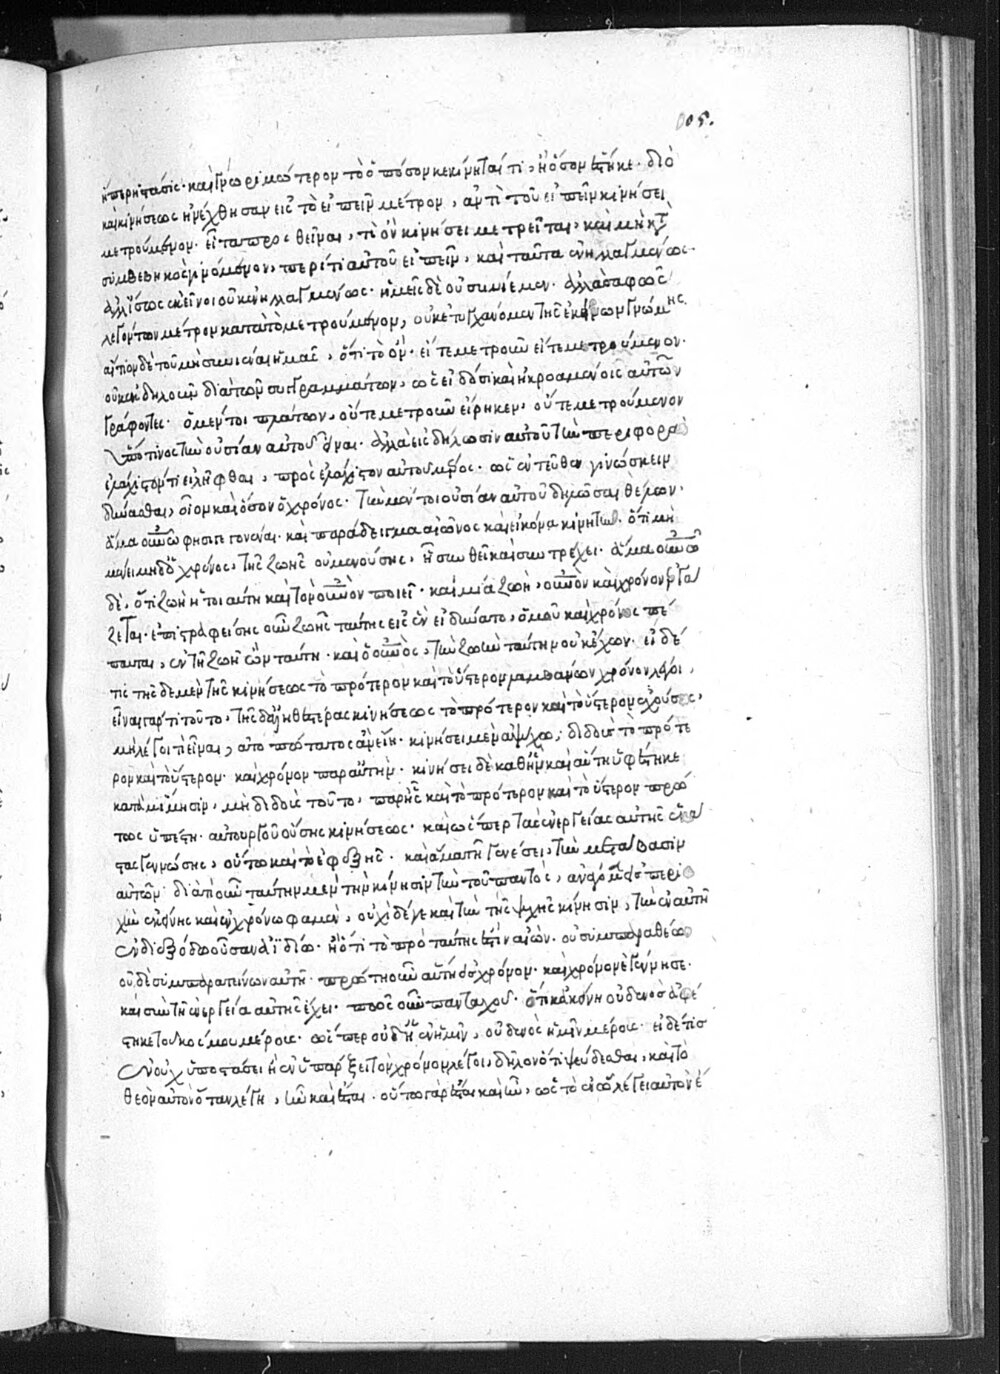 ἢ περὶ στάσις· καὶ γνωριμώτερον τὸ ὁπόσον κεκίνηταί τι, ἢ ὅσον ἕστηκε· διὸ
καὶ κινήσεως ἠνέχθησαν εἰς τὸ εἰπεῖν μέτρον, ἀντὶ τοῦ εἰπεῖν κινήσει
μετρούμενον· εἶτα προσθεῖναι, τί ὂν κινήσει μετρεῖται, καὶ μὴ κατὰ
συμβεβηκὸς γινόμενον, περί τι αὐτοῦ εἰπεῖν, καὶ ταῦτα ἐνηλλαγμένως·
ἀλλ' ἴσως ἐκεῖνοι οὐκ ἐνηλλαγμένως· ἡμεῖς δὲ οὐ συνίεμεν· ἀλλὰ σαφῶς
λεγόντων μέτρον κατὰ τὸ μετρούμενον, οὐκ ἐτυγχάνομεν τῆς ἐκείνων γνώμης·
αἴτιον δὲ τοῦ μὴ συνιέναι ἡμᾶς, ὅτι τὸ ὄν· εἴτε μετροῦν εἴτε μετρούμενον·
οὐκ ἐδήλουν διὰ τῶν συγγραμμάτων, ὡς εἰδόσι καὶ ἠκροαμένοις αὐτῶν
γράφοντες· ὁ μέντοι πλάτων, οὔτε μετροῦν εἴρηκεν, οὔτε μετρούμενον
ὑπό τινος τὴν οὐσίαν αὐτοῦ εἶναι· ἀλλὰ εἰς δήλωσιν αὐτοῦ τὴν περιφορὰν
ἐλάχιστόν τι εἰλῆφθαι, πρὸς ἐλάχιστον αὐτοῦ μέρος· ὡς ἐντεῦθεν γινώσκειν
δύνασθαι, οἷον καὶ ὅσον ὁ χρόνος· τὴν μέντοι οὐσίαν αὐτοῦ δηλῶσαι θέλων·
ἅμα οὐνῶ φησι γεγονέναι· κατὰ παράδειγμα αἰῶνος καὶ εἰκόνα κινητήν· ὅτι μὴ
μένει μηδ' ὁ χρόνος, τῆς ζωῆς οὐ μενούσης, ᾗ συνθεῖ καὶ συντρέχει· ἅμα οὐνῶ
δέ, ὅτι ζωὴ ἡ τοιαύτη καὶ τὸν οὐνὸν ποιεῖ· καὶ μία ζωὴ, οὐνὸν καὶ χρόνον ἐργά
ζεται· ἐπιστραφείσης οὖν ζωῆς ταύτης εἰς ἓν εἰ δύναιτο, ὁμοῦ καὶ χρόνος πέ
παυται, ἐν τῇ ζωῇ ὢν ταύτῃ· καὶ ὁ οὐνὸς, τὴν ζωὴν ταύτην οὐκ ἔχων· εἰ δέ
τις τῆσδε μὲν τῆς κινήσεως τὸ πρότερον καὶ τὸ ὕστερον λαμβάνων χρόνον λέγοι,
εἶναι γάρ τι τοῦτο, τῆς δ' ἀληθεστέρας κινήσεως τὸ πρότερον καὶ τὸ ὕστερον ἐχούσης,
μὴ λέγοι τὶ εἶναι, ἀτοπώτατος ἂν εἴη· κινήσει μὲν ἀψύχω, διδοὺς τὸ πρότε
ρον καὶ τὸ ὕστερον· καὶ χρόνον παρ' αὐτήν· κινήσει δὲ καθ' ἣν καὶ αὕτη ὑφέστηκε
κατὰ μίμησιν, μὴ διδοὺς τοῦτο, παρ' ἧς καὶ τὸ πρότερον καὶ τὸ ὕστερον πρώ
τως ὑπέστη· αὐτουργοῦ οὔσης κινήσεως· καὶ ὥσπερ τὰς ἐνεργείας αὐτῆς ἑκάσ
τας γεννώσης, οὕτω καὶ τὸ ἐφεξῆς· καὶ ἅμα τῇ γενέσει, τὴν μετάβασιν
αὐτῶν· διὰ τί οὖν ταύτην μὲν τὴν κίνησιν τὴν τοῦ παντὸς, ἀνάγομεν εἰς περιο
χὴν ἐκείνης καὶ ἐν χρόνω φαμὲν, οὐχὶ δέ γε καὶ τὴν τῆς ψυχῆς κίνησιν, τὴν ἐν αὐτῇ
ἐν διεξόδω οὖσαν ἀϊδίω· ἢ ὅτι τὸ πρὸ ταύτης ἐστὶν αἰών· οὐ συμπαραθέων
οὐδὲ συμπαρατείνων αὐτῇ· πρώτη οὖν αὕτη εἰς χρόνον· καὶ χρόνον ἐγέννησε·
καὶ σὺν τῇ ἐνεργεία αὐτῆς ἔχει· πῶς οὖν πανταχοῦ· ὅτι κἀκείνη οὐδενὸς ἀφέ
στηκε τοῦ κόσμου μέρους· ὥσπερ οὐδ' ἡ ἐν ἡμῖν, οὐδενὸς ἡμῶν μέρους· εἰ δέ τις
ἐν οὐχ ὑποστάσει ἢ ἐν ὑπάρξει τὸν χρόνον λέγοι, δηλονότι ψεύδεσθαι, καὶ τὸ
θεὸν αὐτὸν ὅταν λέγη, ἦν καὶ ἔσται· οὕτω γὰρ ἔσται καὶ ἦν, ὡς τὸ ἐν ᾧ λέγει αὐτὸν ἔ